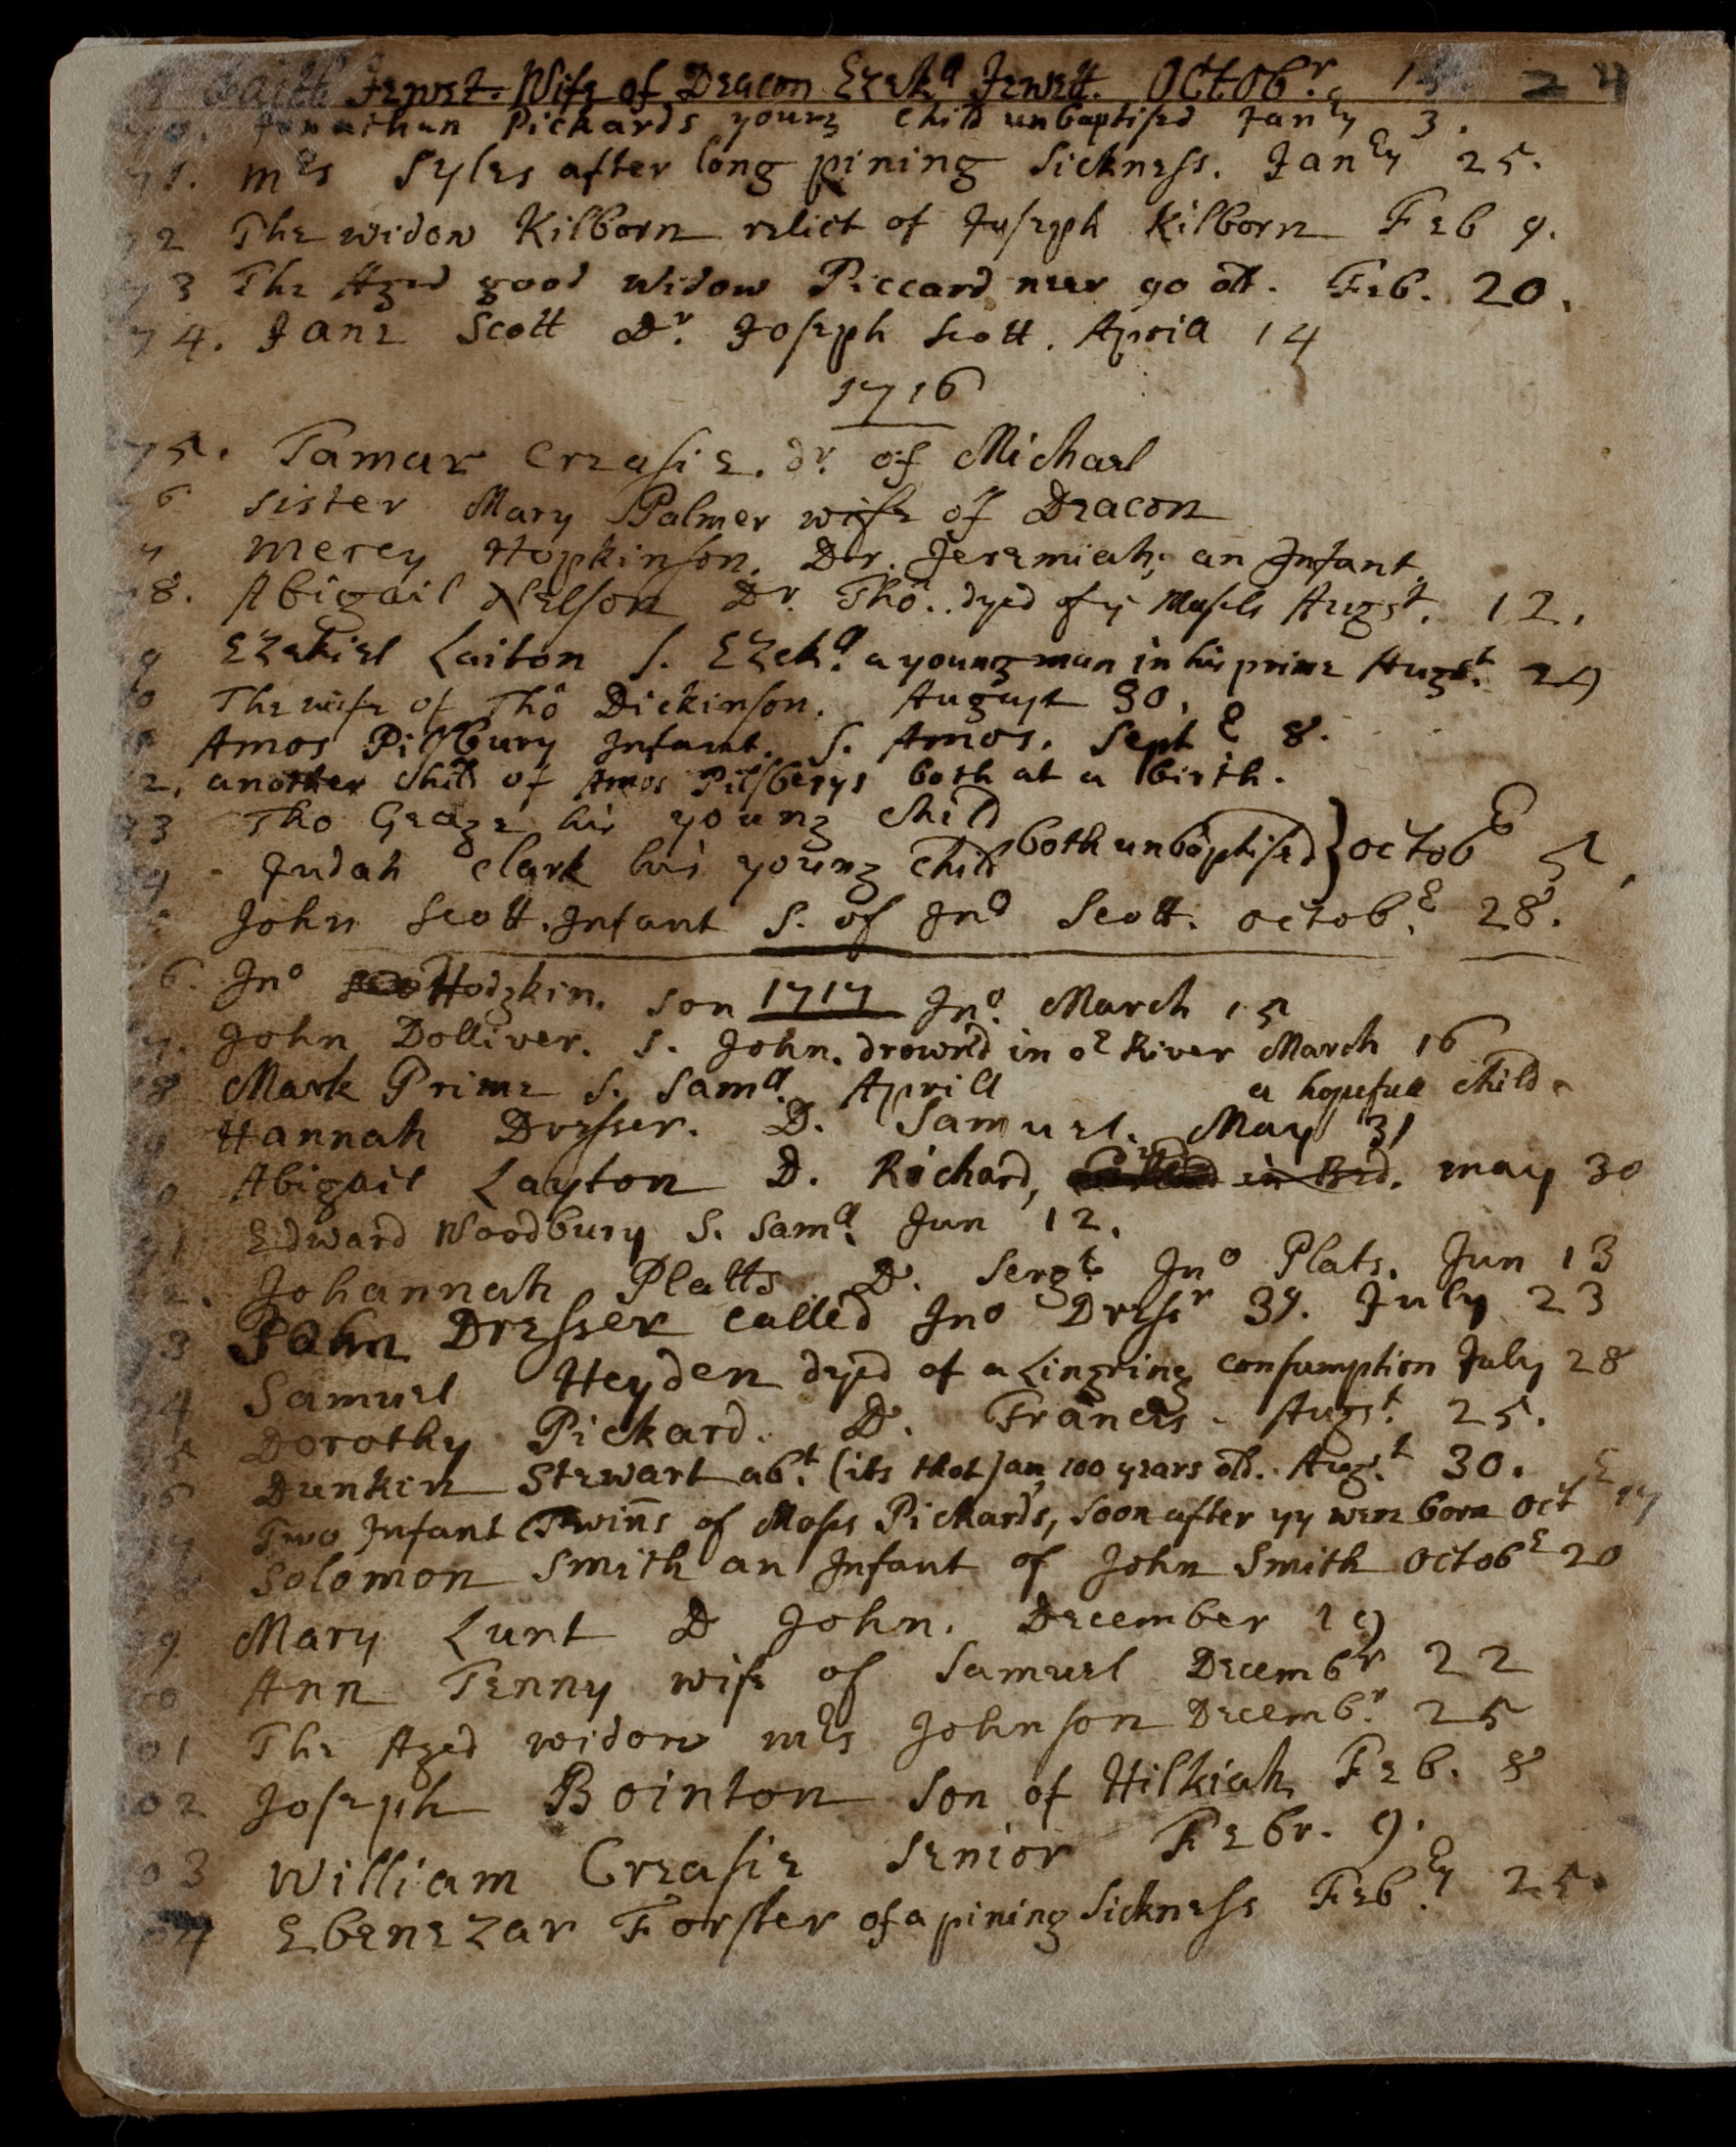 Faith Jewet. Wife of Deacon Ezekll Jewett. Octobr. 15 24
70. Jonathan Pickards young child unbaptised Janry 3.
71. mrs Syles after long pining sickness. Janry 25.
72 The widow Kilborn relict of Joseph Kilborn Feb 9.
73 The Aged good widow Piccard near 90 old. Feb. 20.
74. Jane Scott Dr. Joseph Scott. Aprill 14
1716
75. Tamar Creasie. dr. of Michael
6 sister Mary Palmer wife of Deacon
7 mercy Hopkinson. Dtr. Jeremiah; an Infant.
78. Abigail Nelson Dr. Tho. dyed of ye Mesels Augst. 12.
9 Ezekiel Laiton s. Ezekll. a young man in his prime Augst. 29
0 The wife of Tho Dickinson. August 30.
1 Amos Pilsbury Infant. s. Amos. Septr 8.
2. another child of Amos Pilsberys both at a birth.
83 Tho Geage his young child
84 Judah Clark his young child both unbaptised } octobr 5.
John Scott. Infant s. of Jno Scott. octobr. 28.
6. Jno Hodgkin. son 1717 Jno. March 15
7. John Dolliver. s. John. drown'd in or River March 16
8 Mark Prime s. Samll. Aprill a hopefull child.
9 Hannah Dresser. D. Samuel. May 31
0 Abigail Layton D. Richard, in Bed. may 30
91 Edward Woodbury s. Samll. Jun 12.
92. Johannah Platts D. Sergt. Jno Plats. Jun 13
93 John Dresser called Jno Dresr 3d. July 23
94 Samuel Heyden dyed of a Lingring consumption July 28
95 Dorothy Pickard. D. Francis. Augst. 25.
96 Dunkin Stewart abt. (its thot) an 100 years old. Augt. 30.
97 Two Infant Twinns of Moses Pickards, soon after yy were born Octr 17
Solomon Smith an Infant of John Smith Octobr 20
9 Mary Lunt D John. December 19
0 Ann Tenny wife of Samuel Decembr 22
01 The Aged widow mrs Johnson Decembr. 25
02 Joseph Bointon son of Hilkiah Feb. 8
03 William Creasie Senior Febr. 9.
04 Ebenezar Forster of a pining sickness Febry 25.